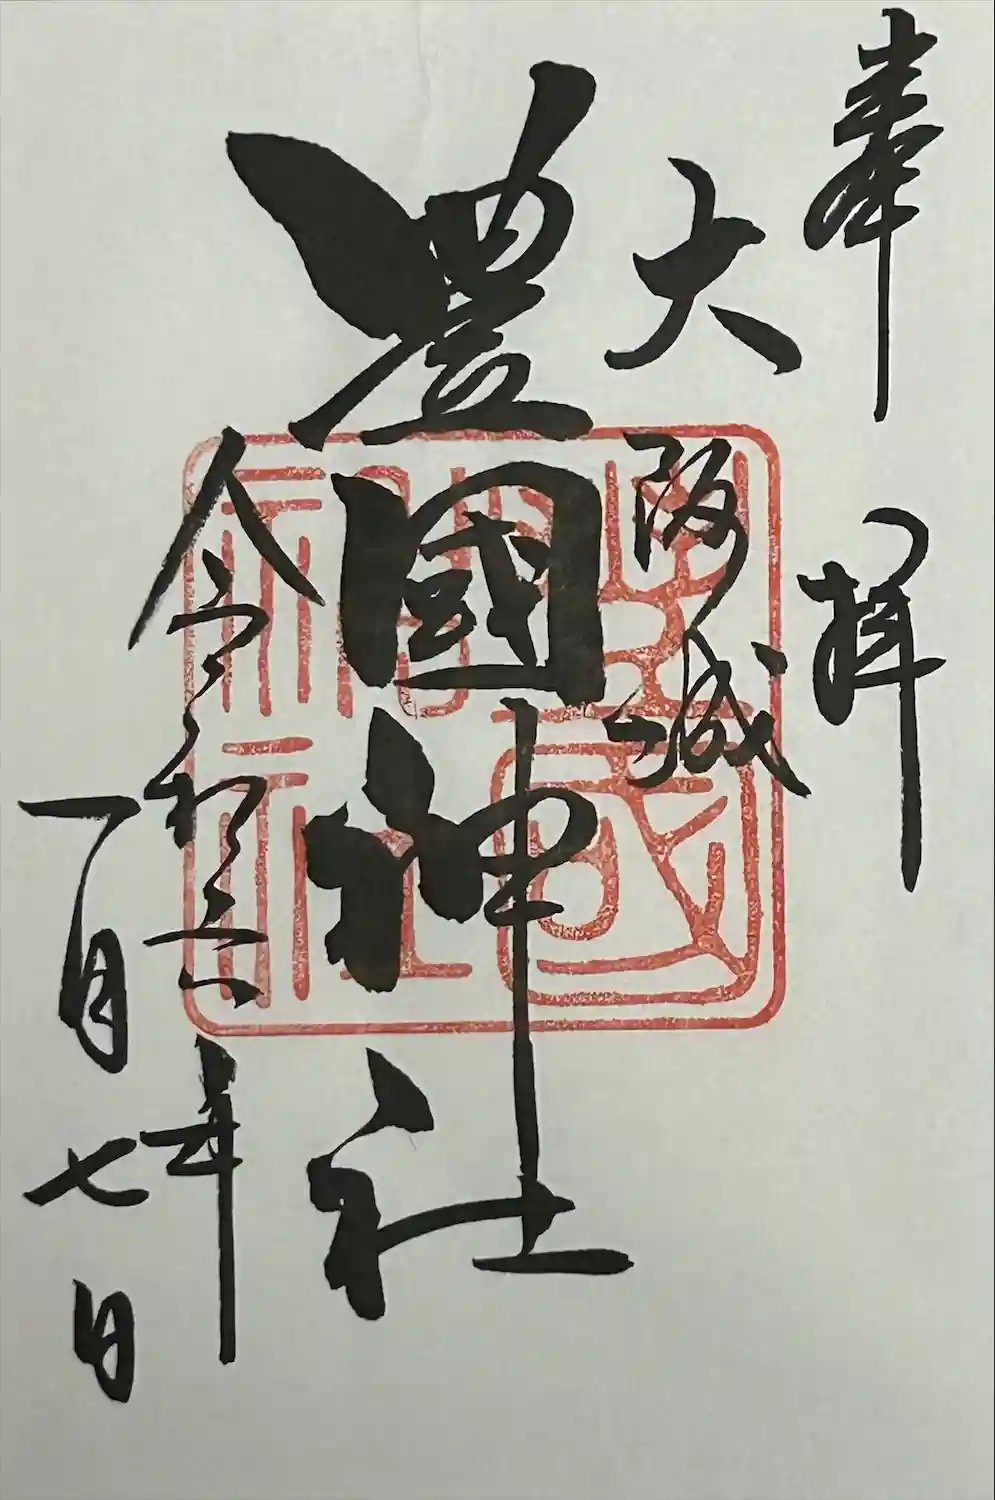 奉拝
大阪城
豊國神社
令和六年
一月七日
豊國神社